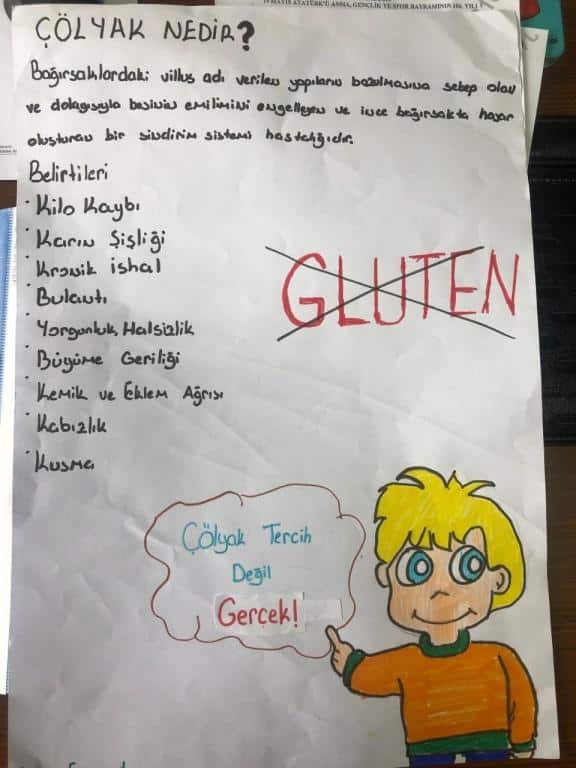 19 MAYIS ATATÜRK'Ü ANMA, GENÇLİK VE SPOR BAYRAMININ 106. YILI
ÇÖLYAK NEDİR?
Bağırsaklardaki villus adı verilen yapıların bozulmasına sebep olan
ve dolayısıyla besinin emilimini engelleyen ve ince bağırsakta hasar
oluşturan bir sindirim sistemi hastalığıdır.
Belirtileri
· Kilo Kaybı
· Karın Şişliği
· Kronik ishal
· Bulantı
· Yorgunluk, Halsizlik
· Büyüme Geriliği
· Kemik ve Eklem Ağrısı
· Kabızlık
· Kusma
GLUTEN
Çölyak Tercih
Değil
Gerçek!